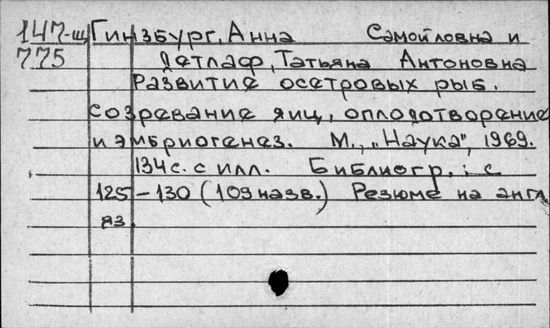 147-щ Гинзбург, Анна Самойловна и
775 Детлаф, Татьяна Антоновна
Развитие осетровых рыб.
созревание яиц, оплодотворение
и эмбриогенез. М., „Наука", 1969.
134 с. с илл. Библиогр.: с
125-130 (109 назв.) Резюме на англ
яз.